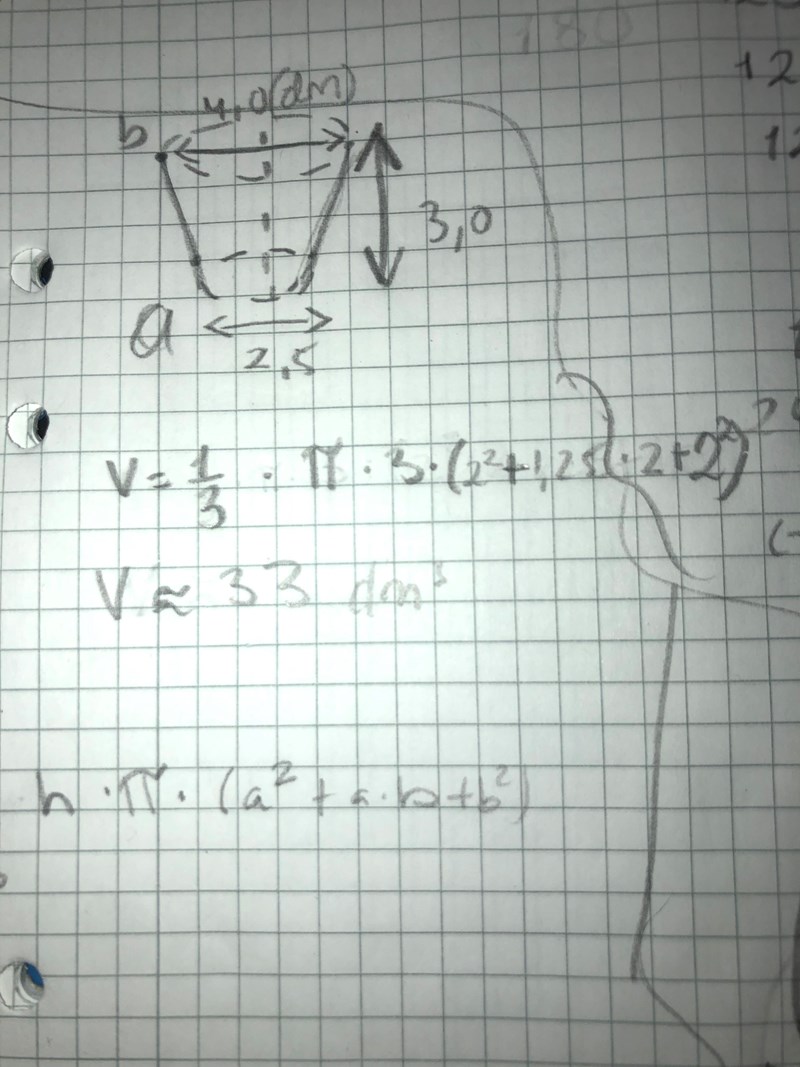 180
12
4,0(dm)
b
12
3,0
a
2,5
V = 1/3 · π · 3 · (2² + 1,25 · 2 + 2²)
V ≈ 33 dm³
h · π · (a² + a · b + b²)